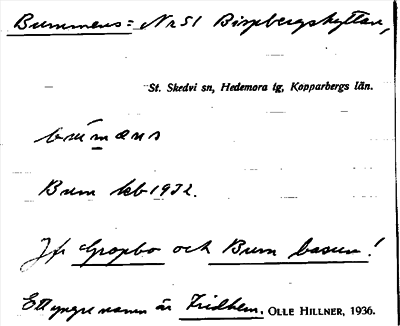 Bummens = Nr 51 Bispbergshyttan,
St. Skedvi sn, Hedemora tg, Kopparbergs län.
bummɛns
Bum kb 1932.
Jfr Gropbo och Bum basun!
Ett yngre namn är Fridhem. OLLE HILLNER, 1936.